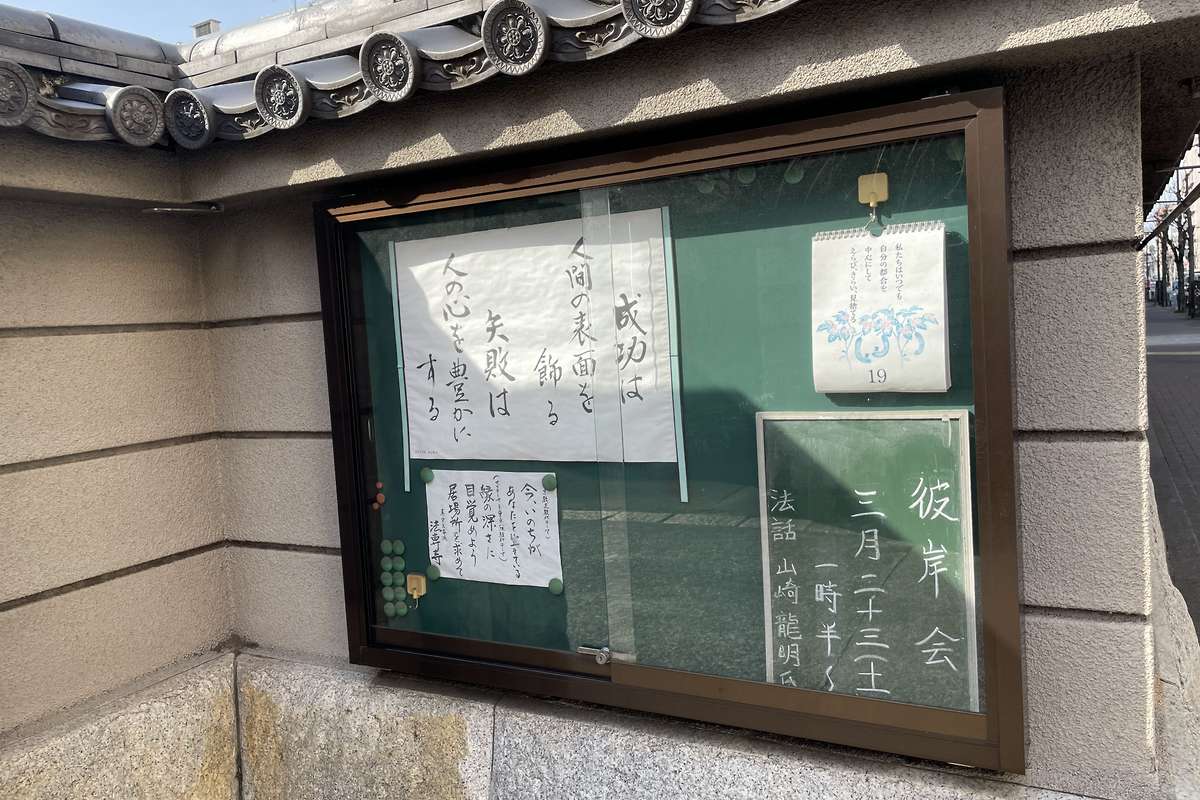 成功は
人間の表面を
飾る
失敗は
人の心を豊かに
する
私たちはいつでも
自分の都合を
中心にして
えらび、きらい、見捨てる
19
彼岸会
三月二十三(土
一時半〜
法話 山崎龍明氏
今、いのちが
あなたを生きている
縁の深さに
目覚めよう
居場所を求めて
法専寺